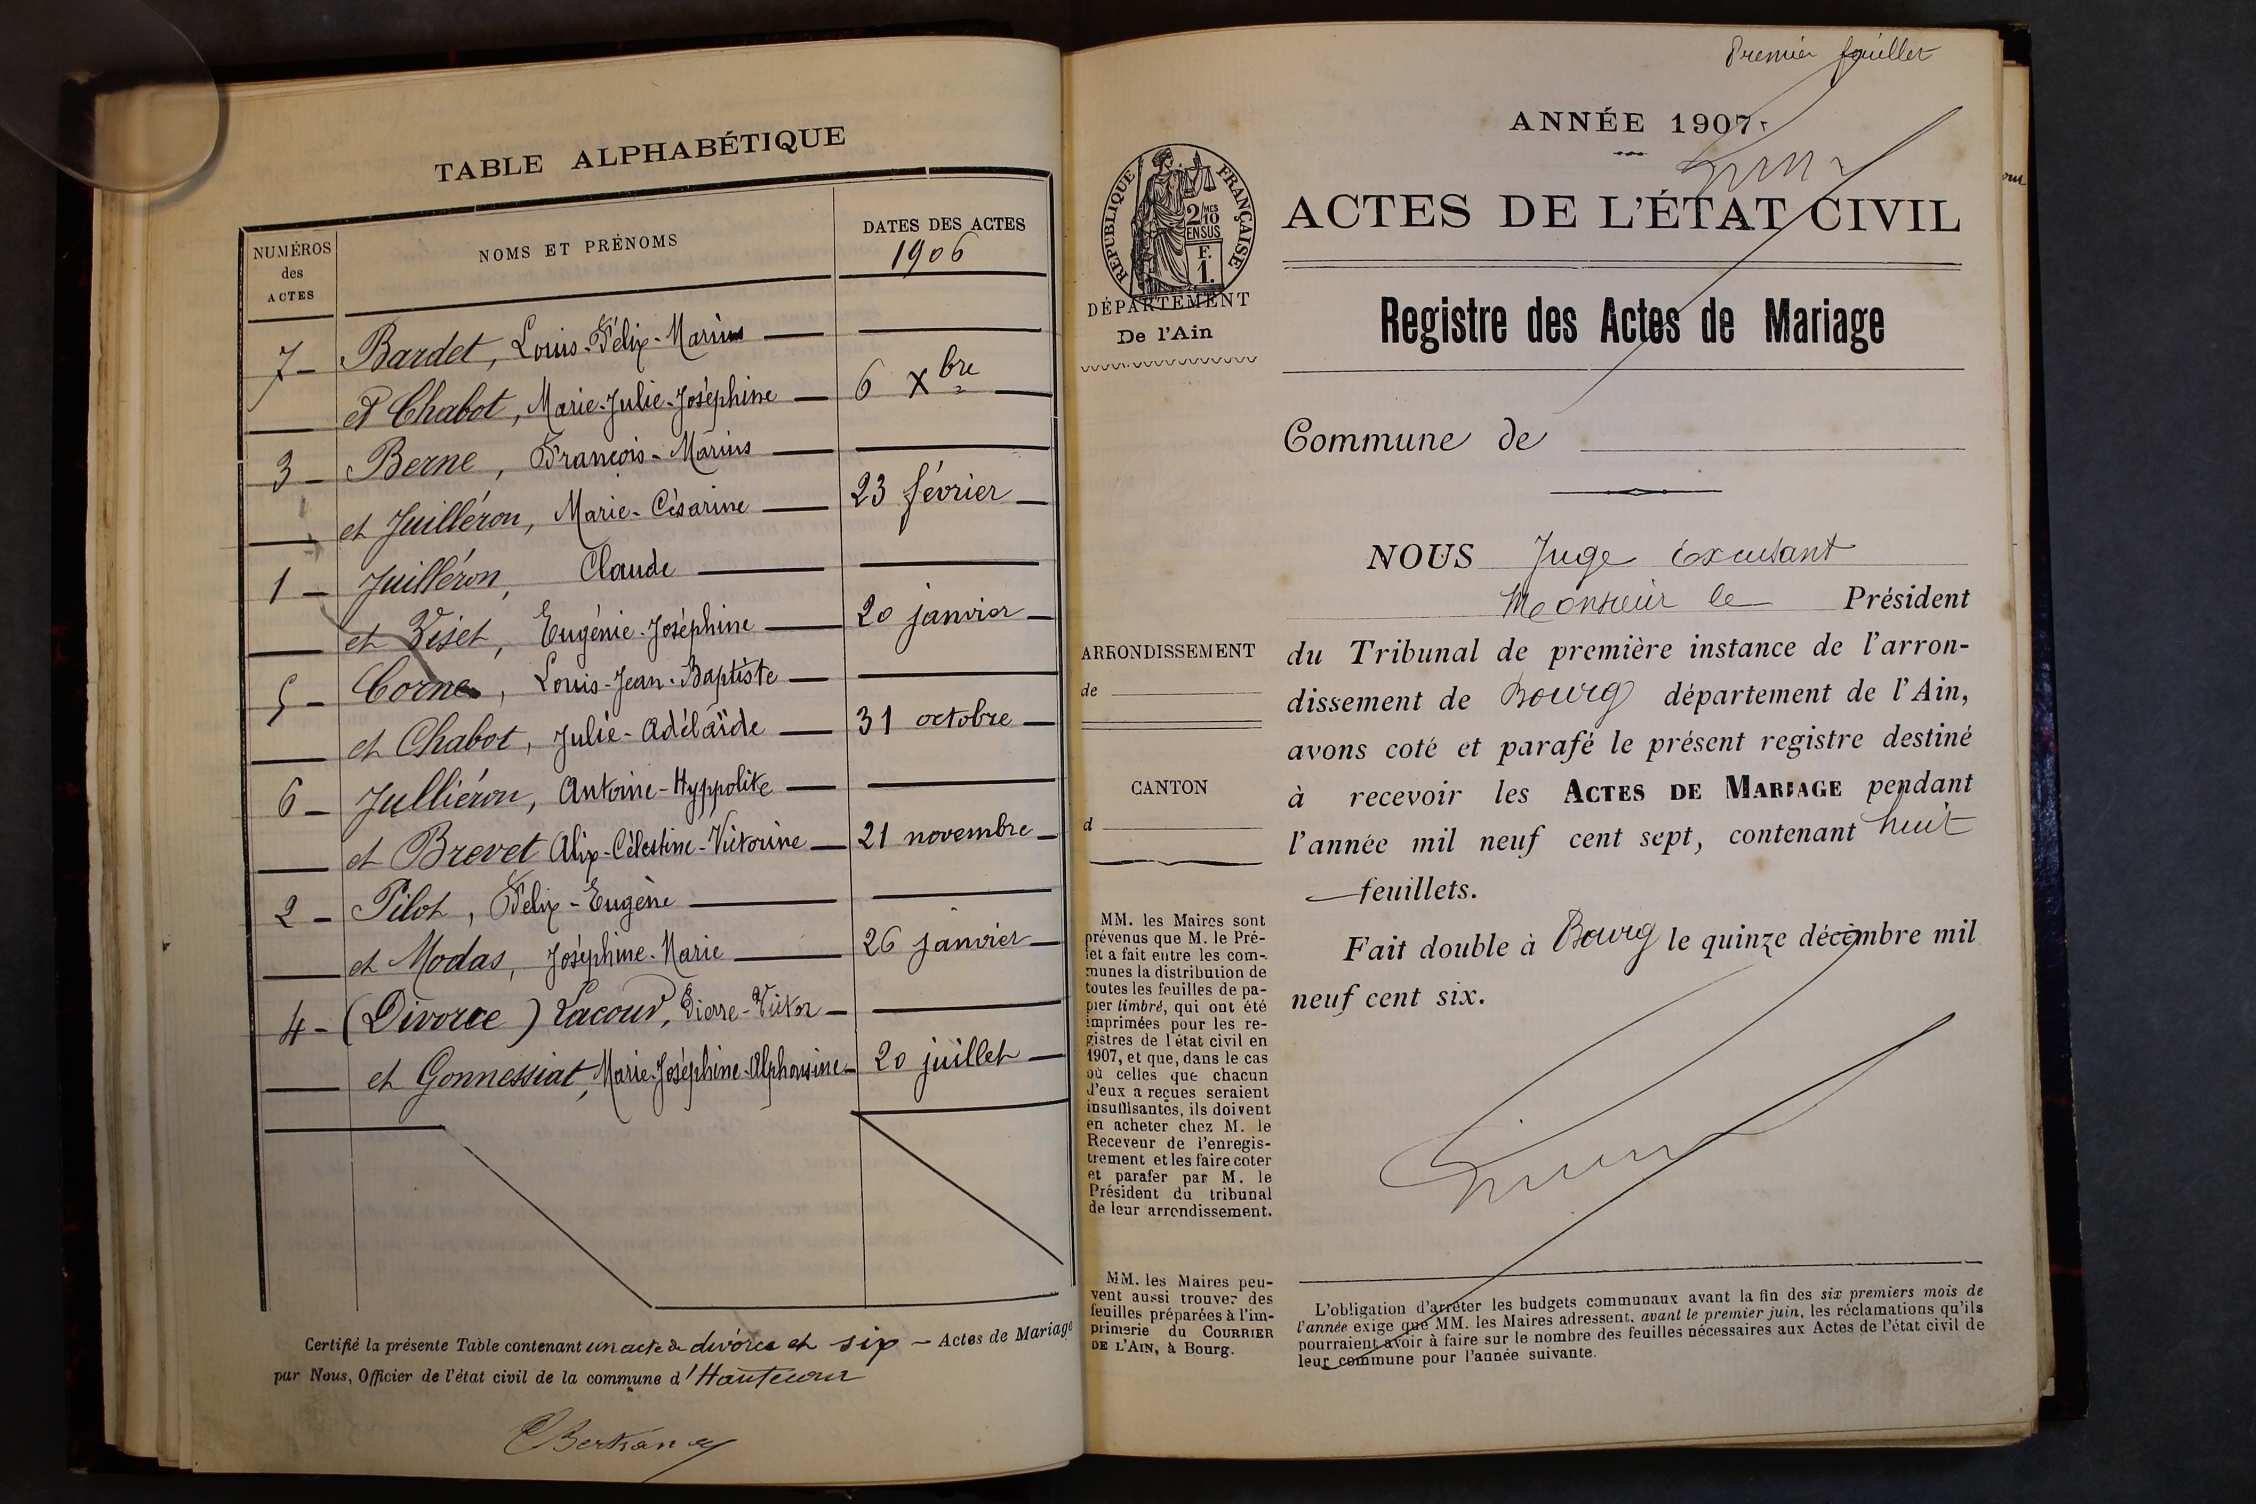 TABLE ALPHABÉTIQUE
NUMÉROS
des
ACTES
NOMS ET PRÉNOMS
DATES DES ACTES
1906
7 - Bardet, Louis-Félix-Marius
et Chabot, Marie-Julie-Joséphine - 6 Xbre
3 - Berne, François-Marius
et Juilléron, Marie-Césarine - 23 février
1 - Juilléron, Claude
et Viset, Eugénie-Joséphine - 20 janvier
5 - Corne, Louis-Jean-Baptiste
et Chabot, Julie-Adélaïde - 31 octobre
6 - Julliéron, Antoine-Hyppolite
et Brevet Alix-Célestine-Victorine - 21 novembre
2 - Pilot, Félix-Eugène
et Modas, Joséphine-Marie - 26 janvier
4 - (Divorce) Lacour, Pierre-Victor
et Gonnessiat, Marie-Joséphine-Alphonsine - 20 juillet
Certifié la présente Table contenant un acte de divorce et six - Actes de Mariage
par Nous, Officier de l'état civil de la commune d'Hautecour
Premier feuillet
ANNÉE 1907
RÉPUBLIQUE FRANÇAISE
2/10 MES
EN SUS
F.
1.
DÉPARTEMENT
De l'Ain
ACTES DE L'ÉTAT CIVIL
Registre des Actes de Mariage
Commune de
NOUS Juge Excusant
Monsieur le Président
du Tribunal de première instance de l'arron-
dissement de Bourg département de l'Ain,
avons coté et parafé le présent registre destiné
à recevoir les ACTES DE MARIAGE pendant
l'année mil neuf cent sept, contenant huit
feuillets.
Fait double à Bourg le quinze décembre mil
neuf cent six.
ARRONDISSEMENT
de
CANTON
d
MM. les Maires sont
prévenus que M. le Pré-
fet a fait entre les com-
munes la distribution de
toutes les feuilles de pa-
pier timbré, qui ont été
imprimées pour les re-
gistres de l'état civil en
1907, et que, dans le cas
où celles que chacun
d'eux a reçues seraient
insuffisantes, ils doivent
en acheter chez M. le
Receveur de l'enregis-
trement et les faire coter
et parafer par M. le
Président du tribunal
de leur arrondissement.
MM. les Maires peu-
vent aussi trouver des
feuilles préparées à l'im-
primerie du COURRIER
DE L'AIN, à Bourg.
L'obligation d'arrêter les budgets communaux avant la fin des six premiers mois de
l'année exige que MM. les Maires adressent, avant le premier juin, les réclamations qu'ils
pourraient avoir à faire sur le nombre des feuilles nécessaires aux Actes de l'état civil de
leur commune pour l'année suivante.